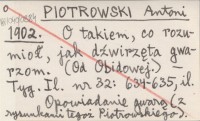 PIOTROWSKI Antoni
1902. O takiem, co rozu-
mioł, jak dźwirzęta gwa-
rzom. (Od Obidowej.)
Tyg. Il. nr 32: 634-635, il.
Opowiadanie gwarą (z
rysunkami tegoż Piotrowskiego).